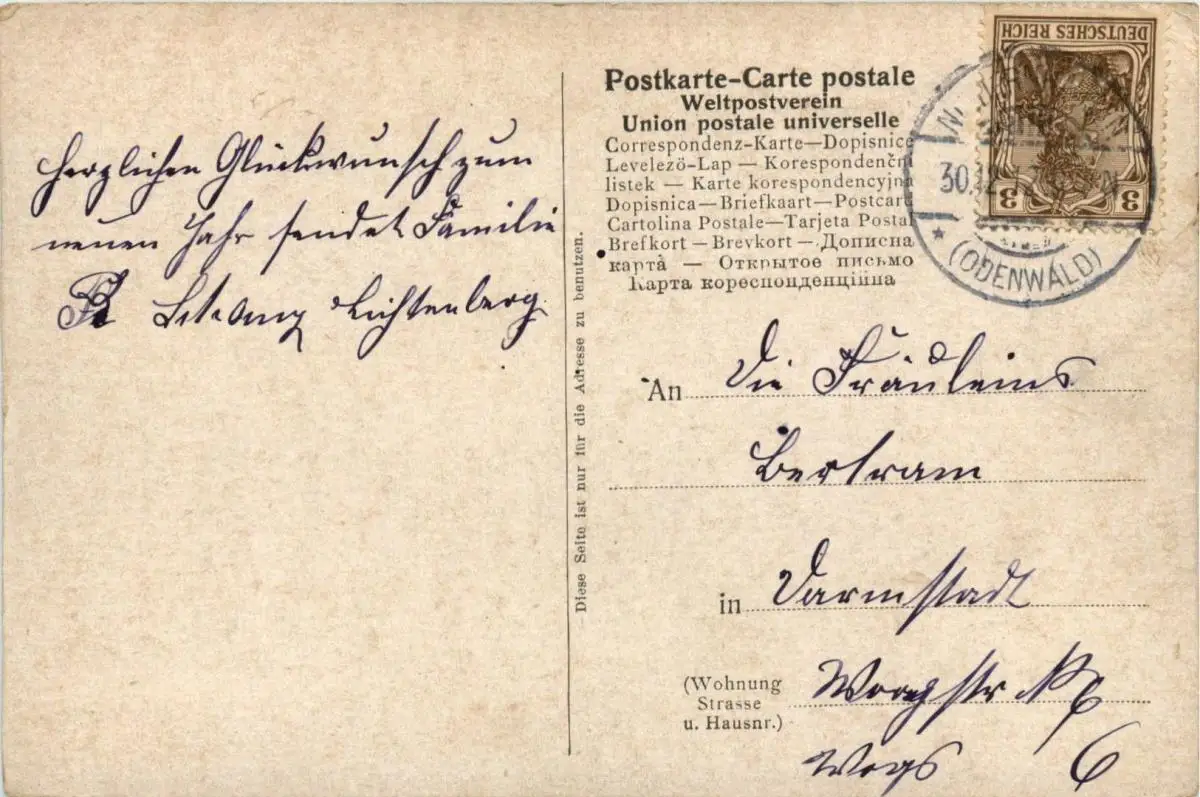 Herzlichen Glückwunsch zum
neuen Jahr sendet Familie
Lichtenberg
Diese Seite ist nur für die Adresse zu benutzen.
Postkarte-Carte postale
Weltpostverein
Union postale universelle
Correspondenz-Karte—Dopisnice
Levelező-Lap — Korespondenční
listek — Karte korespondencyjna
Dopisnica — Briefkaart — Postcard
Cartolina Postale — Tarjeta Postal
Brefkort — Brevkort — Дописна
карта — Открытое письмо
Карта кореспонденційна
DEUTSCHES REICH
3 3
30.12
* (ODENWALD)
An Die Fräuleins
Bertram
in Darmstadt
(Wohnung
Strasse
u. Hausnr.)
Woogstr № 6
Wogs 6